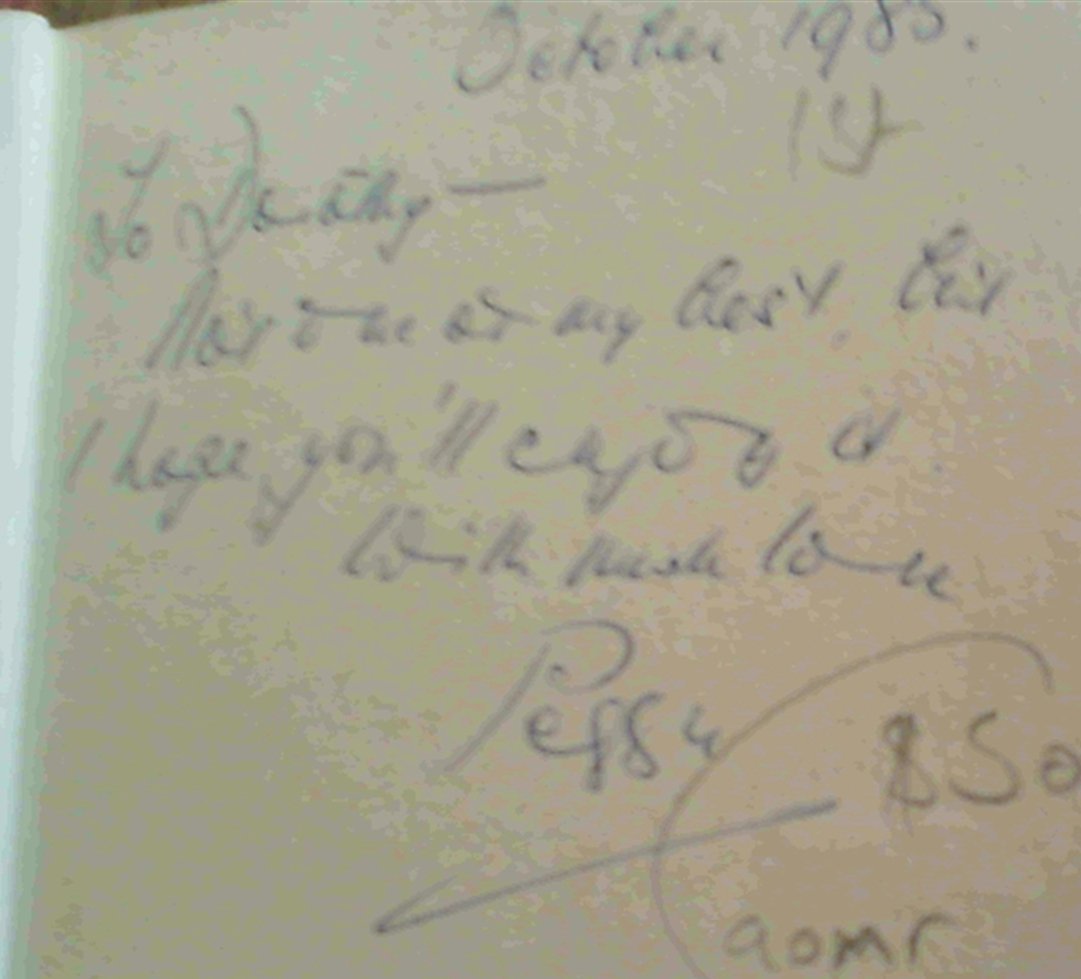 October 1985.
15
To Dorothy —
Not one of my best, but
I hope you'll enjoy it.
With much love
Peggy
$50
aomr